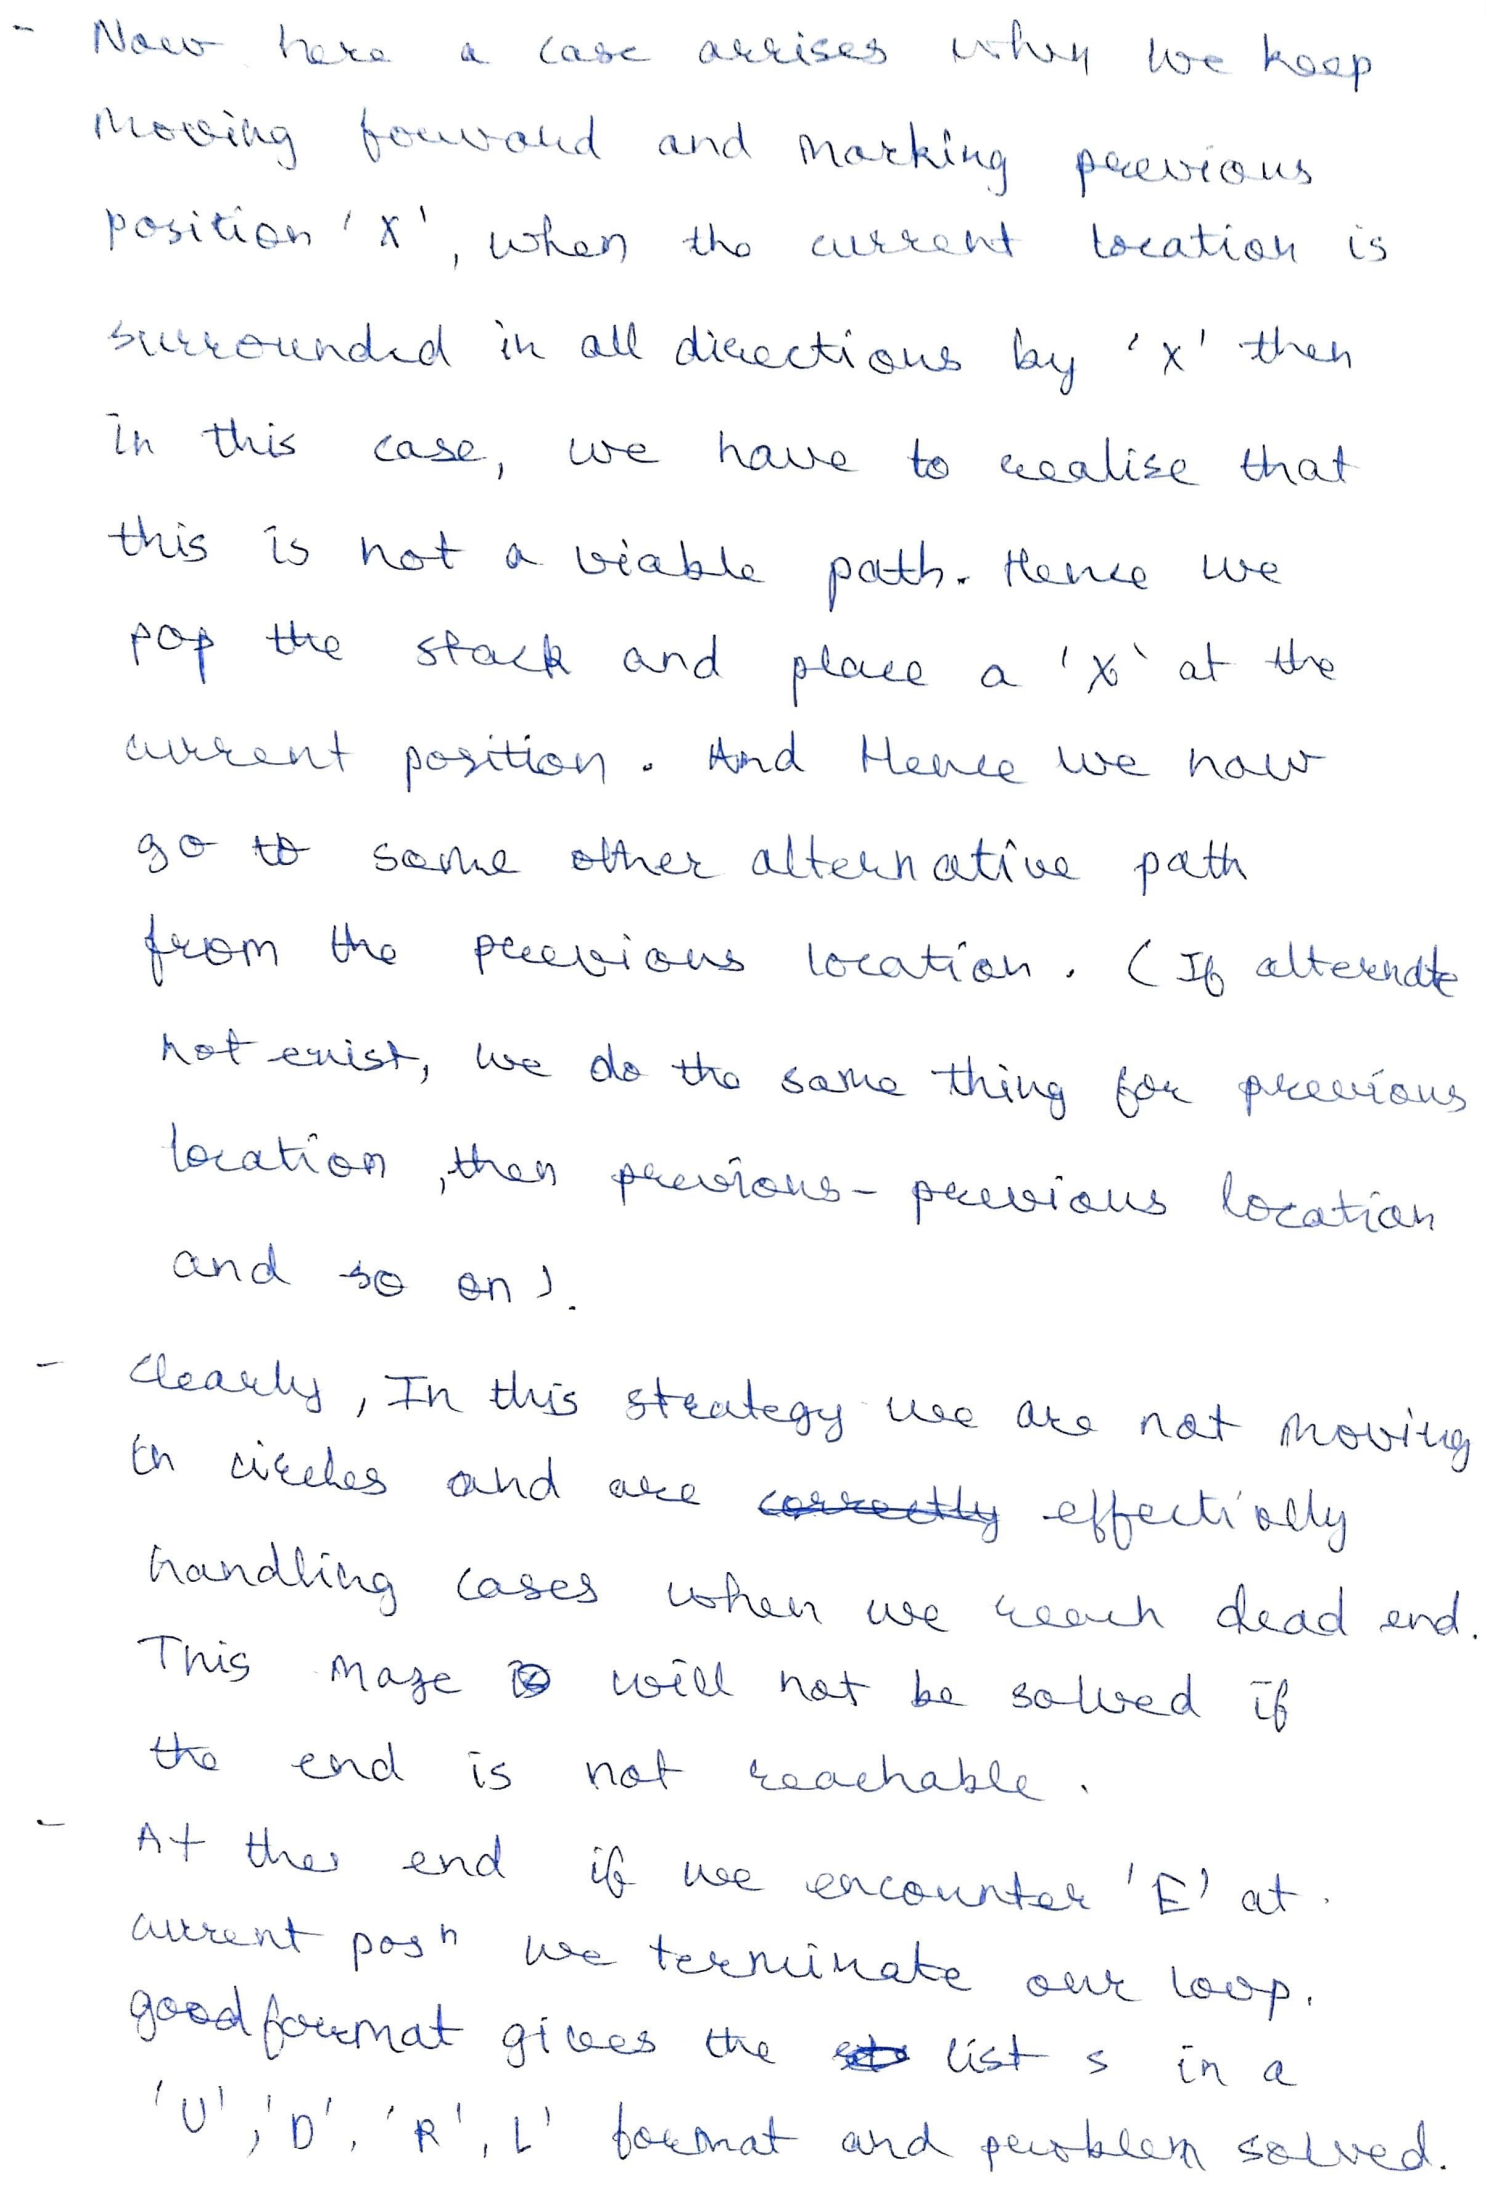 - Now here a case arrises when we keep
moving forward and marking previous
position 'X', when the current location is
surrounded in all directions by 'X' then
in this case, we have to realise that
this is not a viable path. Hence we
pop the stack and place a 'X' at the
current position. And Hence we now
go to some other alternative path
from the previous location. (If alternate
not exist, we do the same thing for previous
location, then previous-previous location
and so on).
- Clearly, In this strategy we are not moving
in circles and are correctly effectively
handling cases when we reach dead end.
This maze will not be solved if
the end is not reachable.
- At the end if we encounter 'E' at
current posn we terminate our loop.
goodformat gives the list s in a
'U', 'D', 'R', L' format and problem solved.